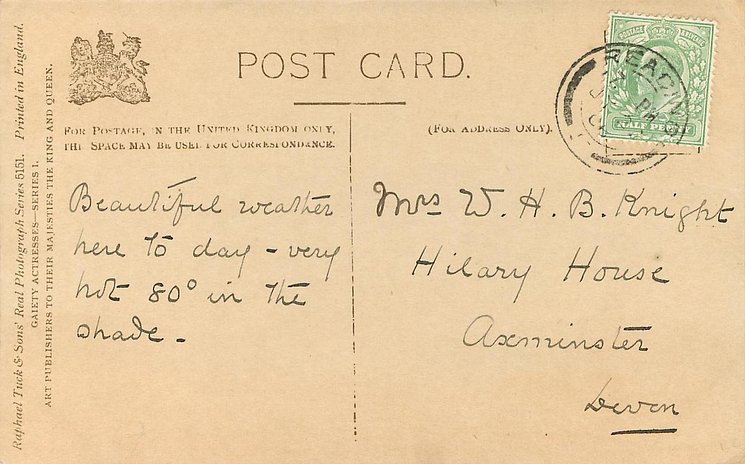 Raphael Tuck & Sons' Real Photograph Series 5151. Printed in England.
GAIETY ACTRESSES—SERIES I.
ART PUBLISHERS TO THEIR MAJESTIES THE KING AND QUEEN.
POST CARD.
FOR POSTAGE, IN THE UNITED KINGDOM ONLY,
THIS SPACE MAY BE USED FOR CORRESPONDANCE.
(FOR ADDRESS ONLY).
POSTAGE REVENUE
HALF PENNY
READING
PM
Beautiful weather
here to day - very
hot 80° in the
shade -
Mrs W. H. B. Knight
Hilary House
Axminster
Devon